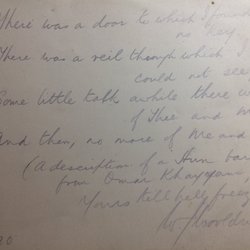 There was a door to which I found
no key
There was a veil through which I
could not see
Some little talk awhile there w
of Thee and m
And then, no more of Me and
(A description of a Hun bar
from Omar Khayyam,
Yours till hell freez
W.
20